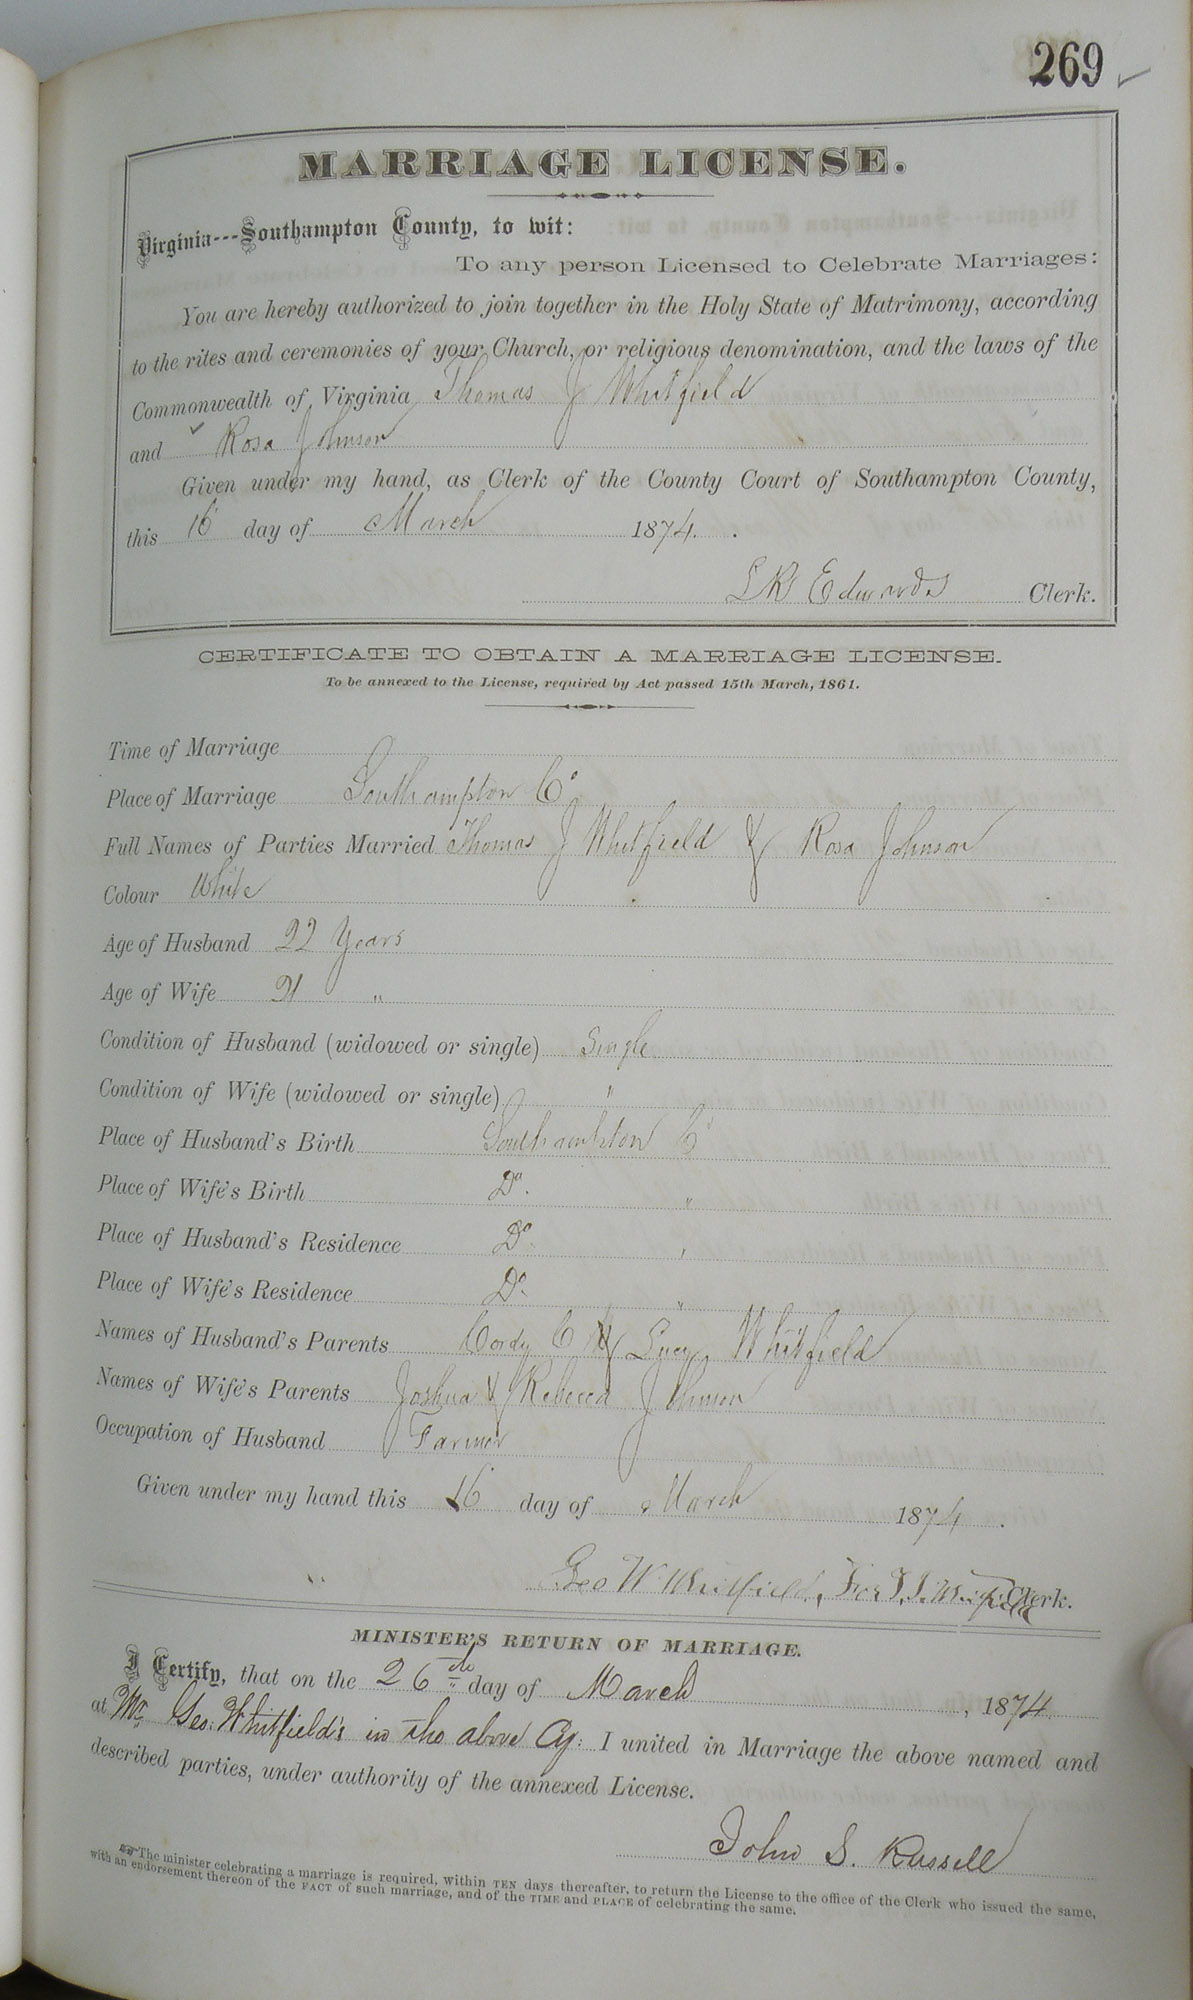 269
MARRIAGE LICENSE.
Virginia---Southampton County, to wit:
To any person Licensed to Celebrate Marriages:
You are hereby authorized to join together in the Holy State of Matrimony, according
to the rites and ceremonies of your Church, or religious denomination, and the laws of the
Commonwealth of Virginia Thomas J Whitfield
and Rosa Johnson
Given under my hand, as Clerk of the County Court of Southampton County,
this 16 day of March 1874.
L R Edwards Clerk.
CERTIFICATE TO OBTAIN A MARRIAGE LICENSE.
To be annexed to the License, required by Act passed 15th March, 1861.
Time of Marriage
Place of Marriage Southampton Co
Full Names of Parties Married Thomas J Whitfield & Rosa Johnson
Colour White
Age of Husband 22 Years
Age of Wife 21 "
Condition of Husband (widowed or single) Single
Condition of Wife (widowed or single) "
Place of Husband's Birth Southampton Co
Place of Wife's Birth Do. "
Place of Husband's Residence Do. "
Place of Wife's Residence Do. "
Names of Husband's Parents Cordy C & Lucy Whitfield
Names of Wife's Parents Joshua & Rebecca Johnson
Occupation of Husband Farmer
Given under my hand this 16 day of March 1874.
Geo W Whitfield, For T. J. Whitfield Clerk.
MINISTER'S RETURN OF MARRIAGE.
I Certify, that on the 26th day of March, 1874
at Mr. Geo: Whitfield's in the above Cy: I united in Marriage the above named and
described parties, under authority of the annexed License.
John S. Russell
☞ The minister celebrating a marriage is required, within TEN days thereafter, to return the License to the office of the Clerk who issued the same,
with an endorsement thereon of the FACT of such marriage, and of the TIME and PLACE of celebrating the same.